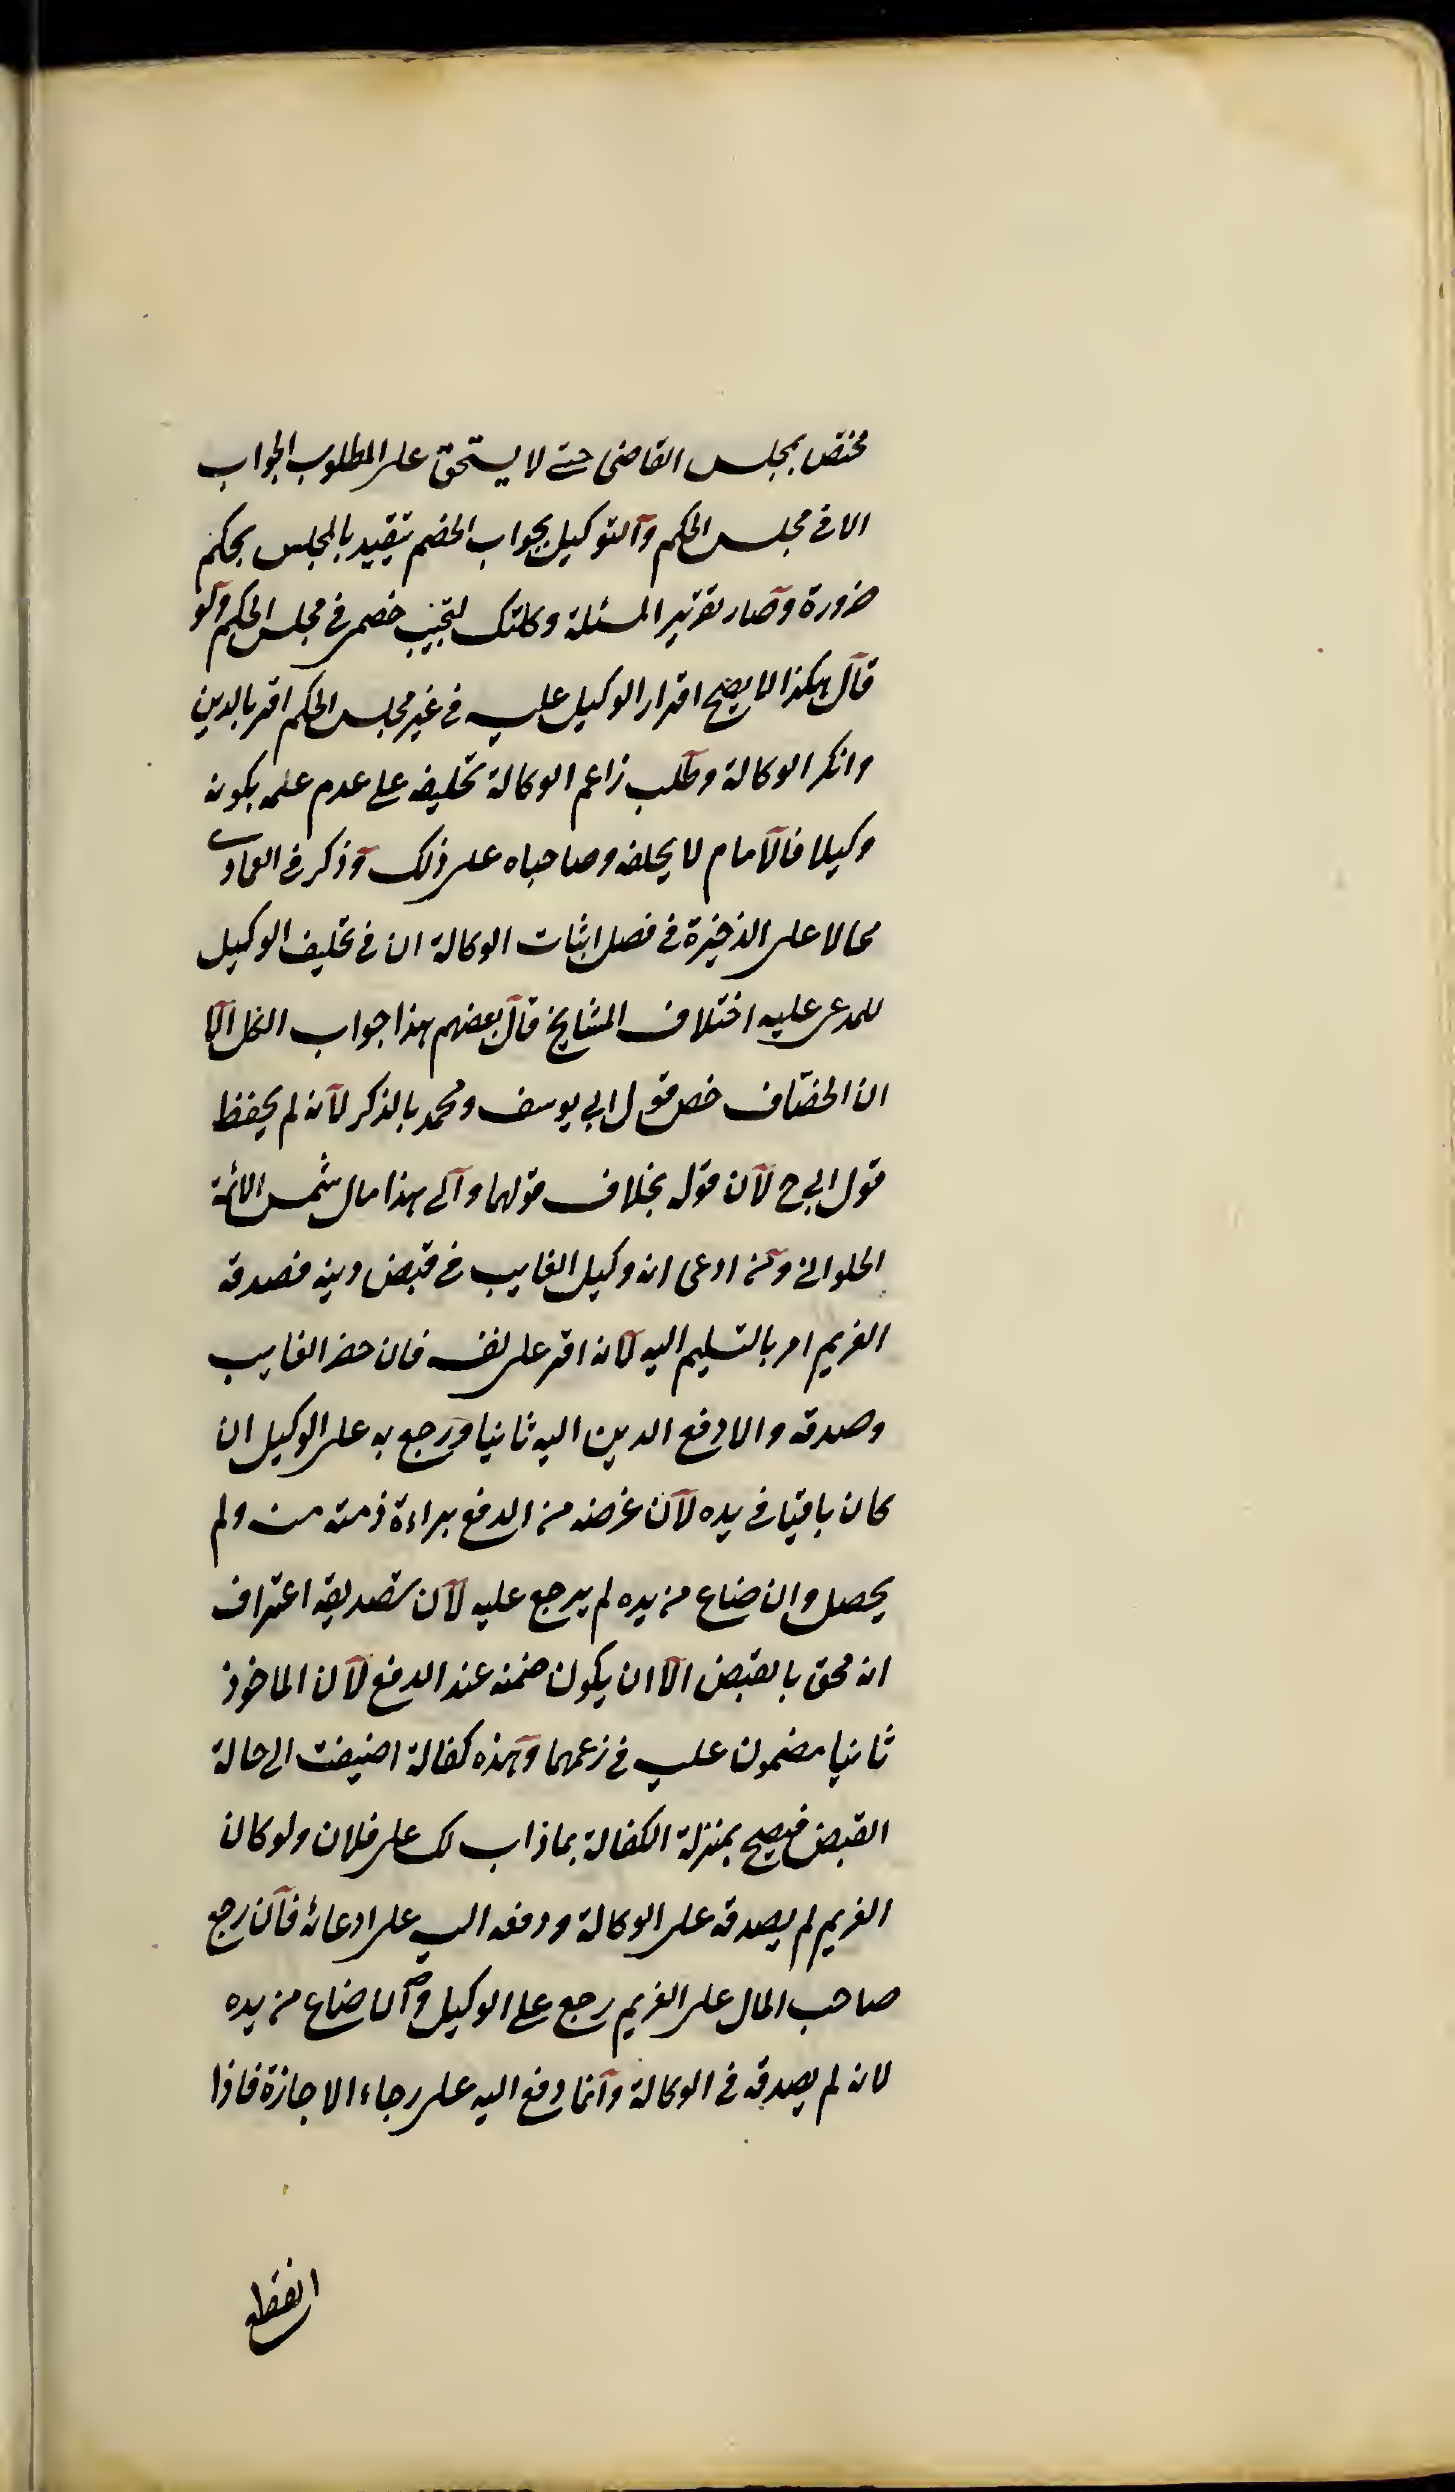 مختص بمجلس القاضى حتى لا يستحق على المطلوب الجواب
الا فى مجلس الحكم والتوكيل بجواب الخصم تيقيد بالمجلس بحكم
ضرورة وصار تقدير المسئلة وكلتك لتجيب خصمى فى مجلس الحكم ولو
قال هكذا لا يصح اقرار الوكيل عليه فى غير مجلس الحكم اقر بالدين
وانكر الوكالة وطلب زاعم الوكالة تحليفه على عدم علمه بكونه
وكيلا فالامام لا يحلفه وصاحباه على ذلك وذكر فى العمادى
محالا على الذخيرة فى فصل اثبات الوكالة ان فى تحليف الوكيل
للمدعى عليه اختلاف المشايخ قال بعضهم هذا جواب الكل الا
ان الخصّاف خص قول ابى يوسف ومحمد بالذكر لانه لم يحفظ
قول ابى ح لان قوله بخلاف قولهما والى هذا مال شمس الائمة
الحلوانى ومن ادعى انه وكيل الغايب فى قبض دينه فصدقه
الغريم امر بالتسليم اليه لانه اقر على نفسه فان حضر الغايب
وصدقه والا دفع الدين اليه ثانيا ورجع به على الوكيل ان
كان باقيا فى يده لان غرضه من الدفع براءة ذمته منه ولم
يحصل وان ضاع من يده لم يرجع عليه لان بتصديقه اعتراف
انه محق بالقبض الا ان يكون ضمنه عند الدفع لان الماخوذ
ثانيا مضمون عليه فى زعمهما وهذه كفالة اضيفت الى حالة
القبض فيصح بمنزلة الكفالة بماذاب لك على فلان ولو كان
الغريم لم يصدقه على الوكالة ودفعه اليه على ادعائه فان رجع
صاحب المال على الغريم رجع على الوكيل ضاع من يده
لانه لم يصدقه فى الوكالة وانما دفع اليه على رجاء الاجازة فاذا
انقطع